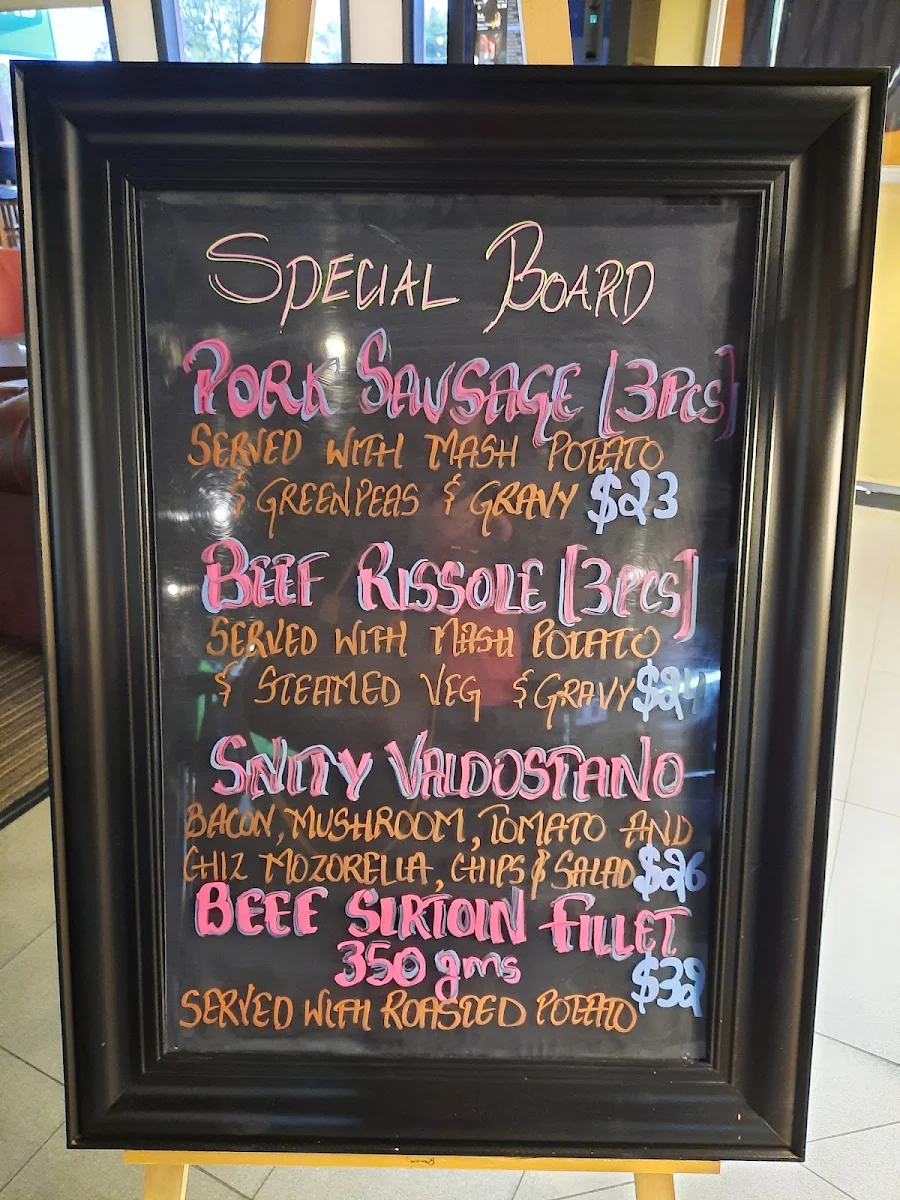 SPECIAL BOARD
PORK SAUSAGE [3PCS]
SERVED WITH MASH POTATO
& GREENPEAS & GRAVY $23
BEEF RISSOLE [3PCS]
SERVED WITH MASH POTATO
& STEAMED VEG & GRAVY $24
SNITY VALDOSTANO
BACON, MUSHROOM, TOMATO AND
CHIZ MOZORELLA, CHIPS & SALAD $26
BEEF SIRTOIN FILLET
350 gms
$32
SERVED WITH ROASTED POTATO